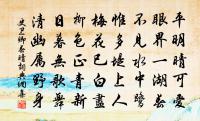 平明晴可愛
眼界一湖春
不見水中鷺
惟多堤上人
梅花已白盡
柳色正青新
日暮無歌舞
清幽属野身
史卫卿春晴詞典網書